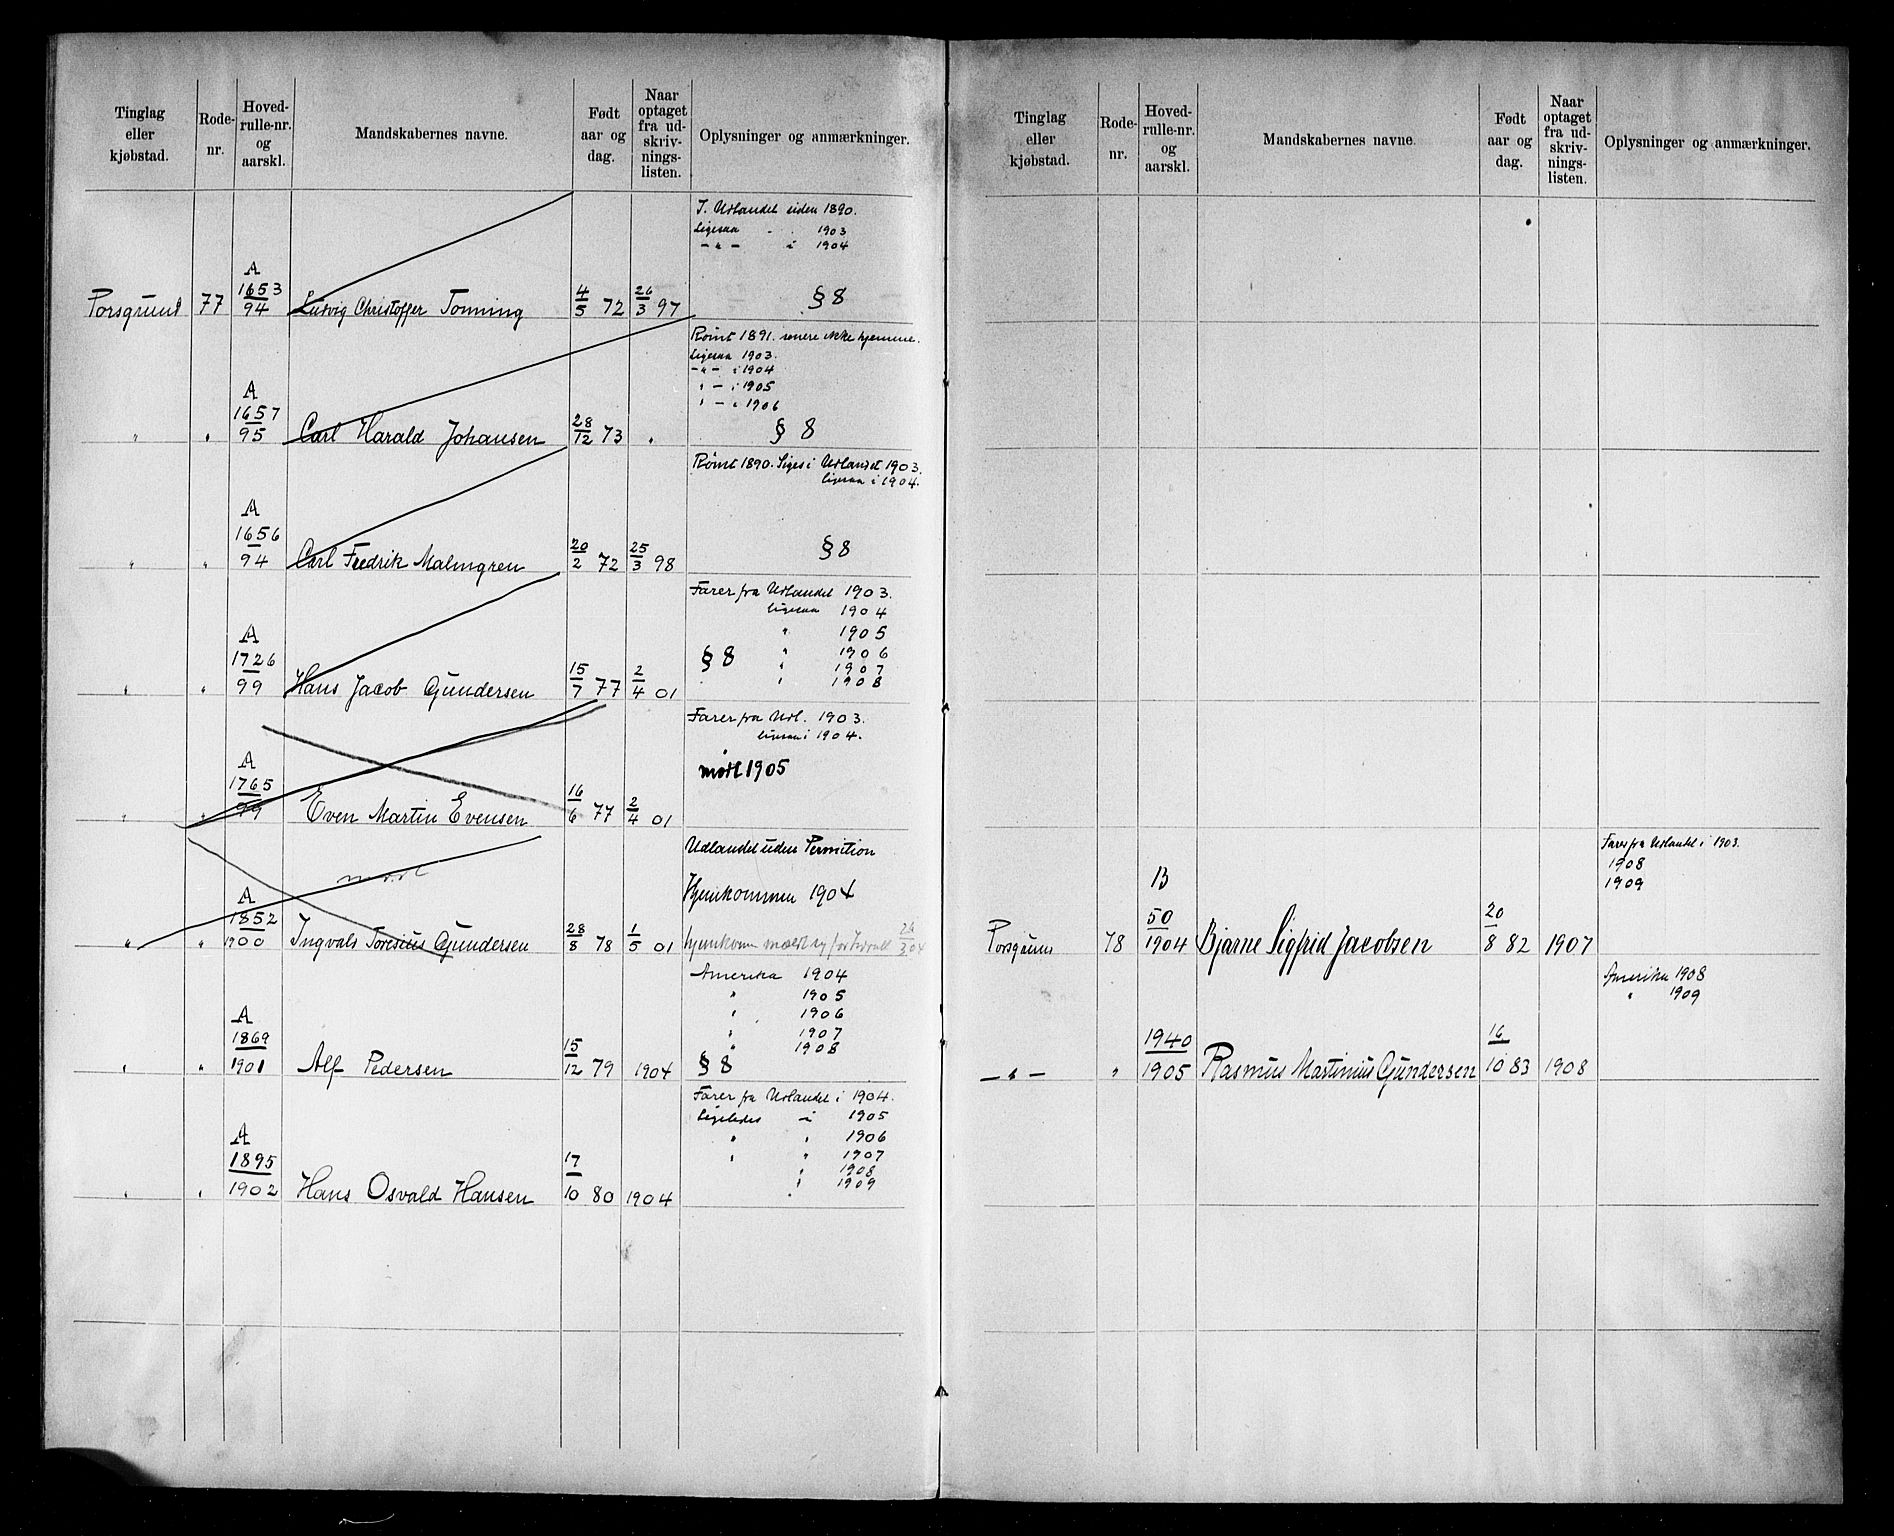 Tinglag eller kjøbstad. Rode-nr. Hoved-rulle-nr. og aarskl. Mandskabernes navne. Født aar og dag. Naar optaget fra ud-skriv-nings-listen. Oplysninger og anmærkninger.
I. Udlandet siden 1890.
Ligesaa - . 1903
-"- i 1904
A
Porsgrund 77 1653/94 Ludvig Christoffer Tonning 4/5 72 26/3 97 § 8
Rømt 1891. senere ikke hjemme.
Ligesaa 1903.
-"- i 1904
" - i 1905
" - i 1906
A
" " 1657/95 Carl Harald Johansen 28/12 73 " § 8
Rømt 1890. Siges i Udlandet 1903.
ligesaa i 1904.
A
" " 1656/94 Carl Fredrik Malmgren 20/2 72 25/3 98 § 8
Farer fra Udlandet 1903.
ligesaa 1904
" 1905
§ 8 " 1906
" 1907
" 1908
A
" " 1726/99 Hans Jacob Gundersen 15/7 77 2/4 01
Farer fra Udl. 1903.
ligesaa i 1904.
mødt 1905
A
" " 1765/99 Even Martin Evensen 16/6 77 2/4 01
Udlandet uden Permition
mødt
Hjemkommen 1904
A
" " 1852/1900 Ingvald Toresius Gundersen 28/8 78 1/5 01 hjemkom mældt 26/3 04
Amerika 1904
" 1905
" 1906
" 1907
" 1908
A
" " 1869/1901 Alf Pedersen 15/12 79 1904 § 8
Farer fra Udlandet i 1904.
Ligeledes - i 1905
" " 1906
" " 1907
" 1908
" 1909
A
" " 1895/1902 Hans Osvald Hansen 17/10 80 1904
Tinglag eller kjøbstad. Rode-nr. Hoved-rulle-nr. og aarskl. Mandskabernes navne. Født aar og dag. Naar optaget fra ud-skriv-nings-listen. Oplysninger og anmærkninger.
Farer fra Udlandet i 1903.
1908
1909
B
Porsgrund 78 50/1904 Bjarne Sigfrid Jacobsen 20/8 82 1907
Amerika 1908
" 1909
-"- " 1940/1905 Rasmus Martinius Gundersen 16/10 83 1908